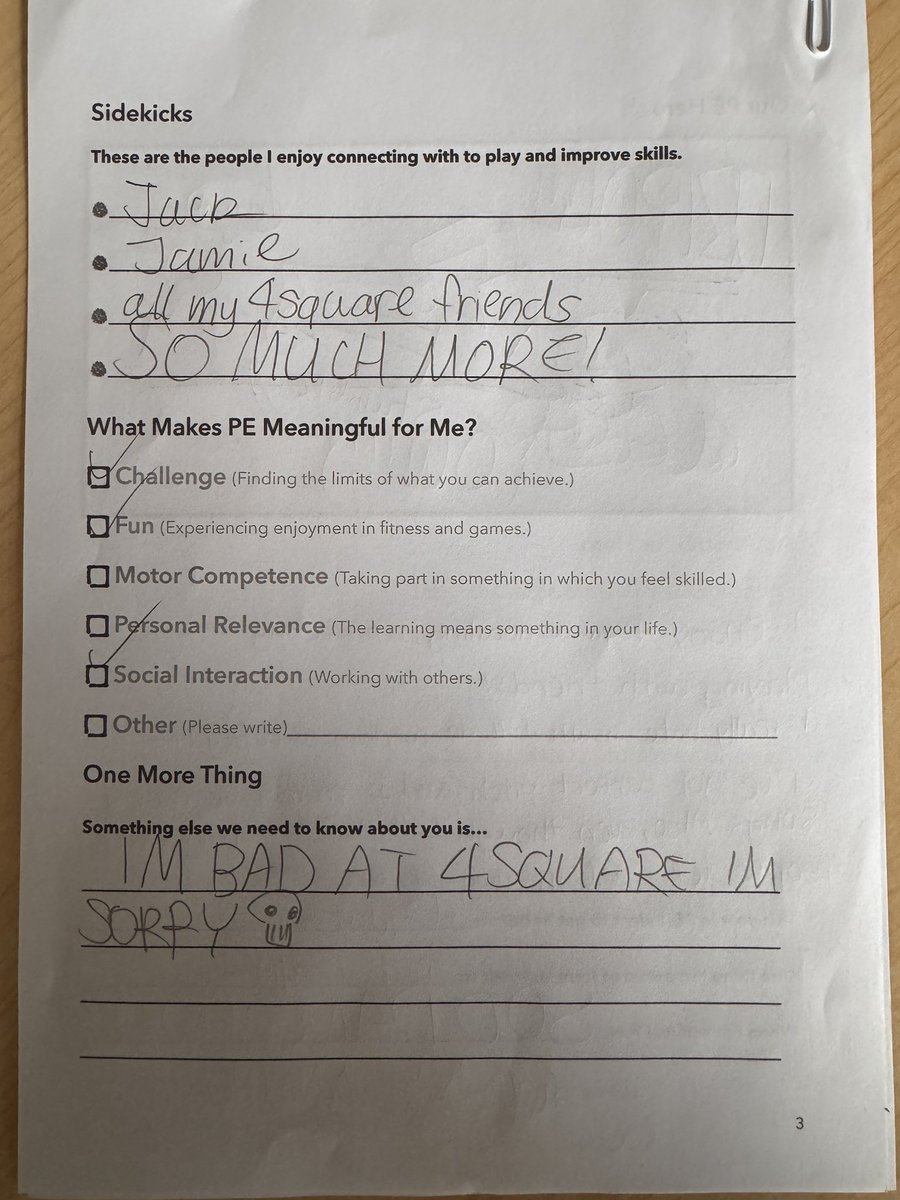 Sidekicks
These are the people I enjoy connecting with to play and improve skills.
Jack
Jamie
all my 4square friends
SO MUCH MORE!
What Makes PE Meaningful for Me?
Challenge (Finding the limits of what you can achieve.)
Fun (Experiencing enjoyment in fitness and games.)
Motor Competence (Taking part in something in which you feel skilled.)
Personal Relevance (The learning means something in your life.)
Social Interaction (Working with others.)
Other (Please write)
One More Thing
Something else we need to know about you is...
IM BAD AT 4SQUARE IM
SORRY
3